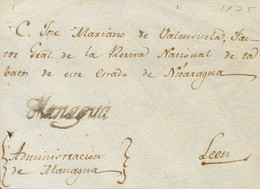 1825
C. Jne Mariano de Valenzuela, Fac-
tor Gral de la Renta Nacional de ta
bacos de este Estado de Nicaragua
Managua
Administracion
de Managua
Leon